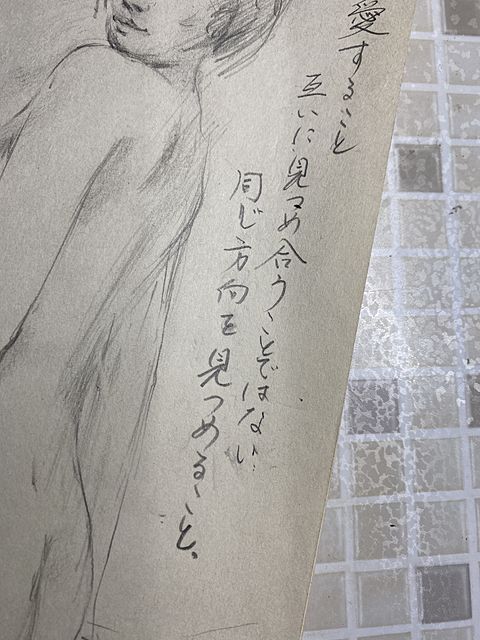 愛すること
互いに見つめ合うことではない
同じ方向を見つめること。